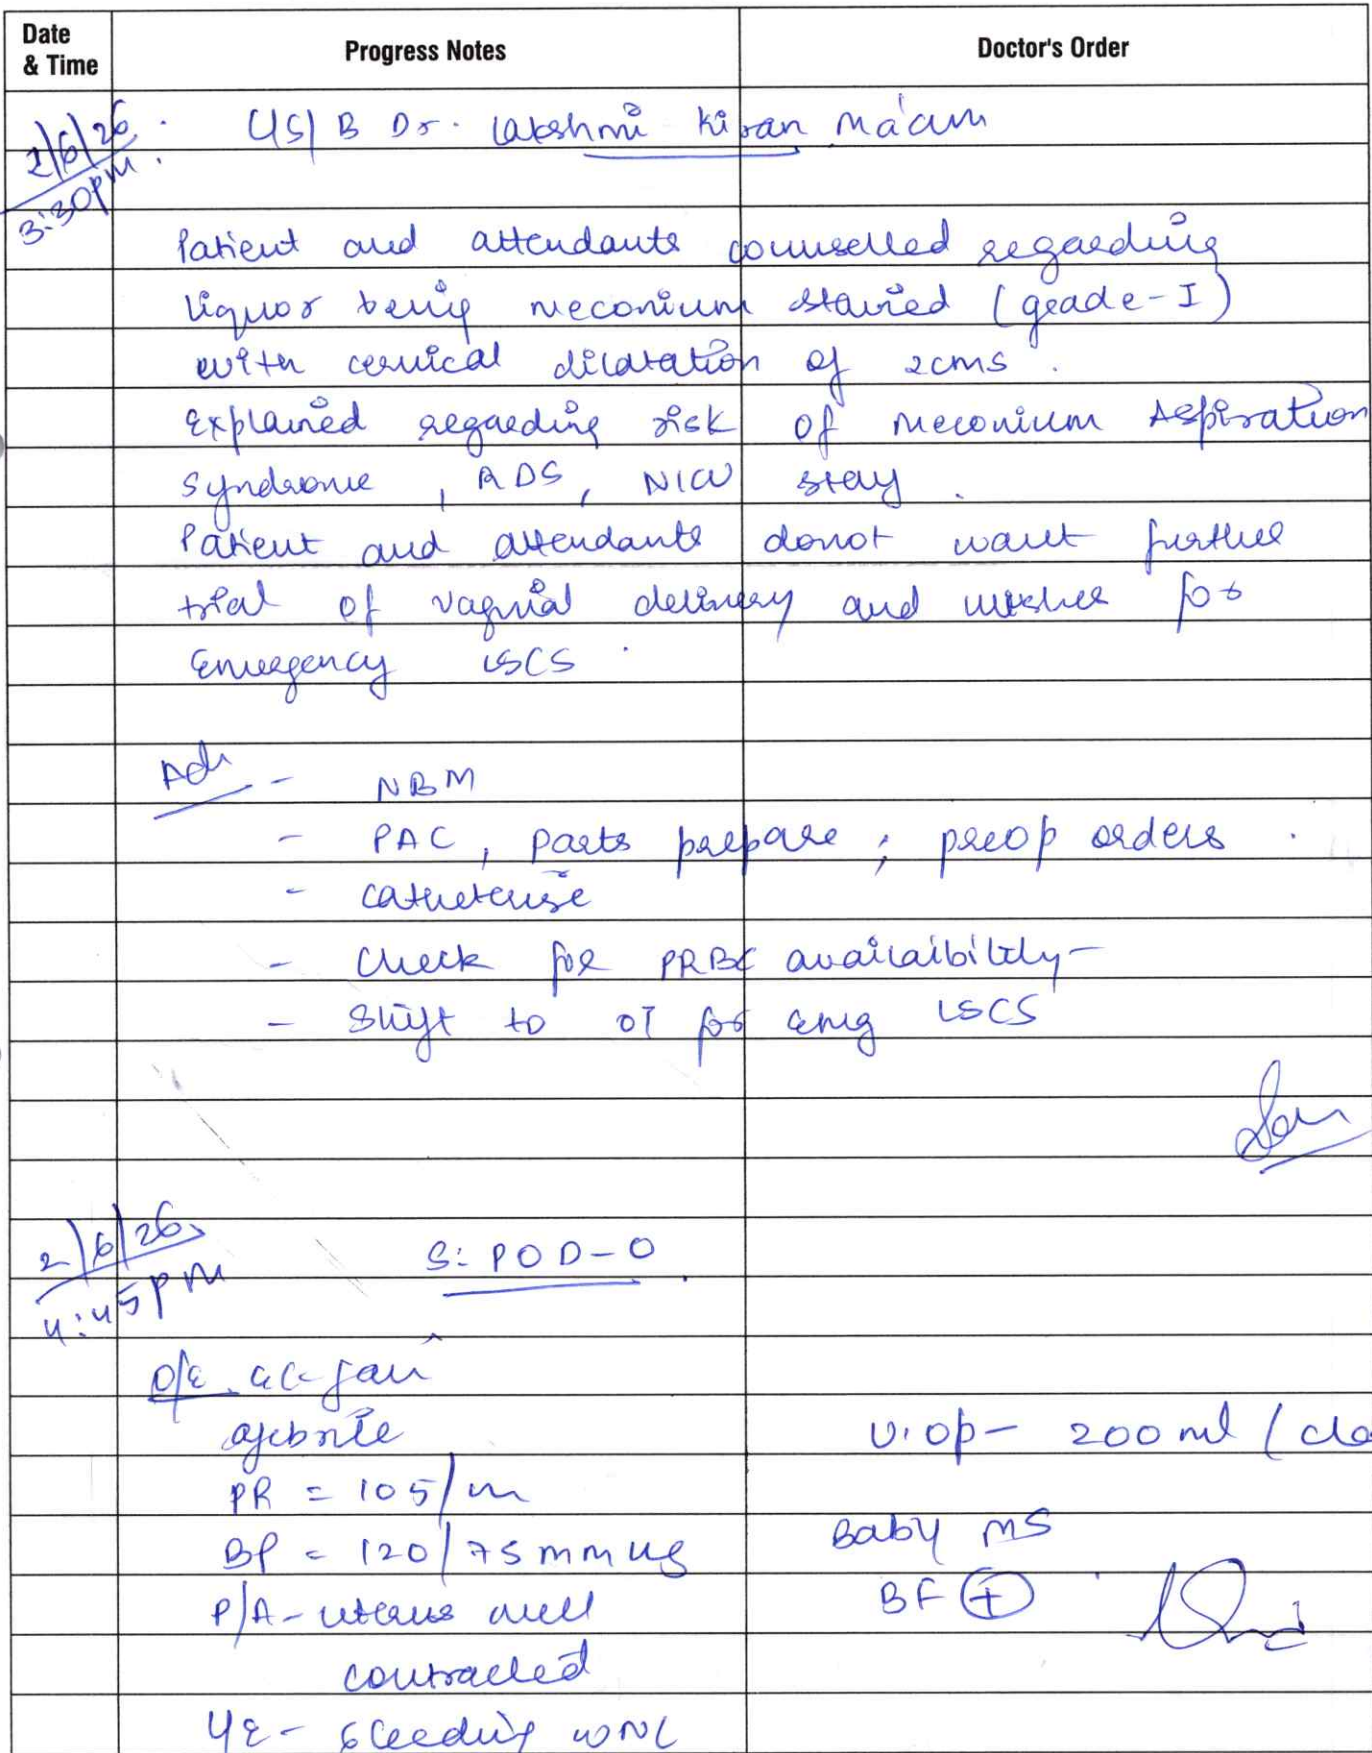 Date & Time Progress Notes Doctor's Order
2/6/26 3:30pm
C/S/B Dr. Lakshmi Kiran Ma'am
Patient and attendants counselled regarding
liquor being meconium stained (grade-I)
with cervical dilatation of 2cms.
Explained regarding risk of Meconium Aspiration
Syndrome, RDS, NICU stay.
Patient and attendants donot want further
trial of vaginal delivery and wishes for
Emergency LSCS.
Adv - NBM
- PAC, parts prepare; preop orders.
- Catheterise
- Check for PRBC availaibility
- Shift to OT for emg LSCS
2/6/26 4:45pm
S: POD-0
O/E GC-fair
afebrile U.op- 200 ml (
PR = 105/m
BP = 120/75 mm Hg Baby MS
P/A - uterus well BF +
contracted
L/E - bleeding WNL